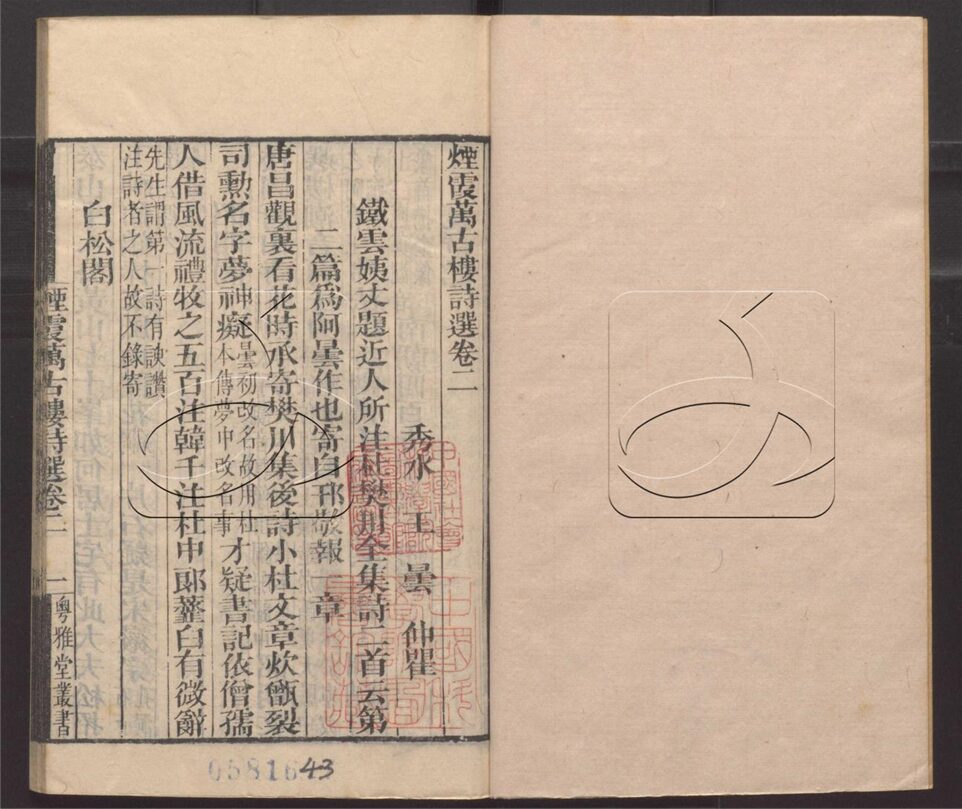 煙霞萬古樓詩選卷二
秀水 王 曇 仲瞿
鐵雲姨丈題近人所注杜樊川全集詩二首云第
二篇爲阿曇作也寄自邗 報一章
唐昌觀裏看花時承寄樊川集後詩小杜文章炊甑裂
司勲名字夢神癡曇初改名故用杜本傳夢中改名事才疑書記依僧孺
人借風流禮牧之五百注韓千注杜中郞虀臼有微辭
先生謂第一詩有諛讚
注詩者之人故不錄寄
白松閣
煙霞萬古樓詩選卷二 一 粤雅堂叢書
0581643